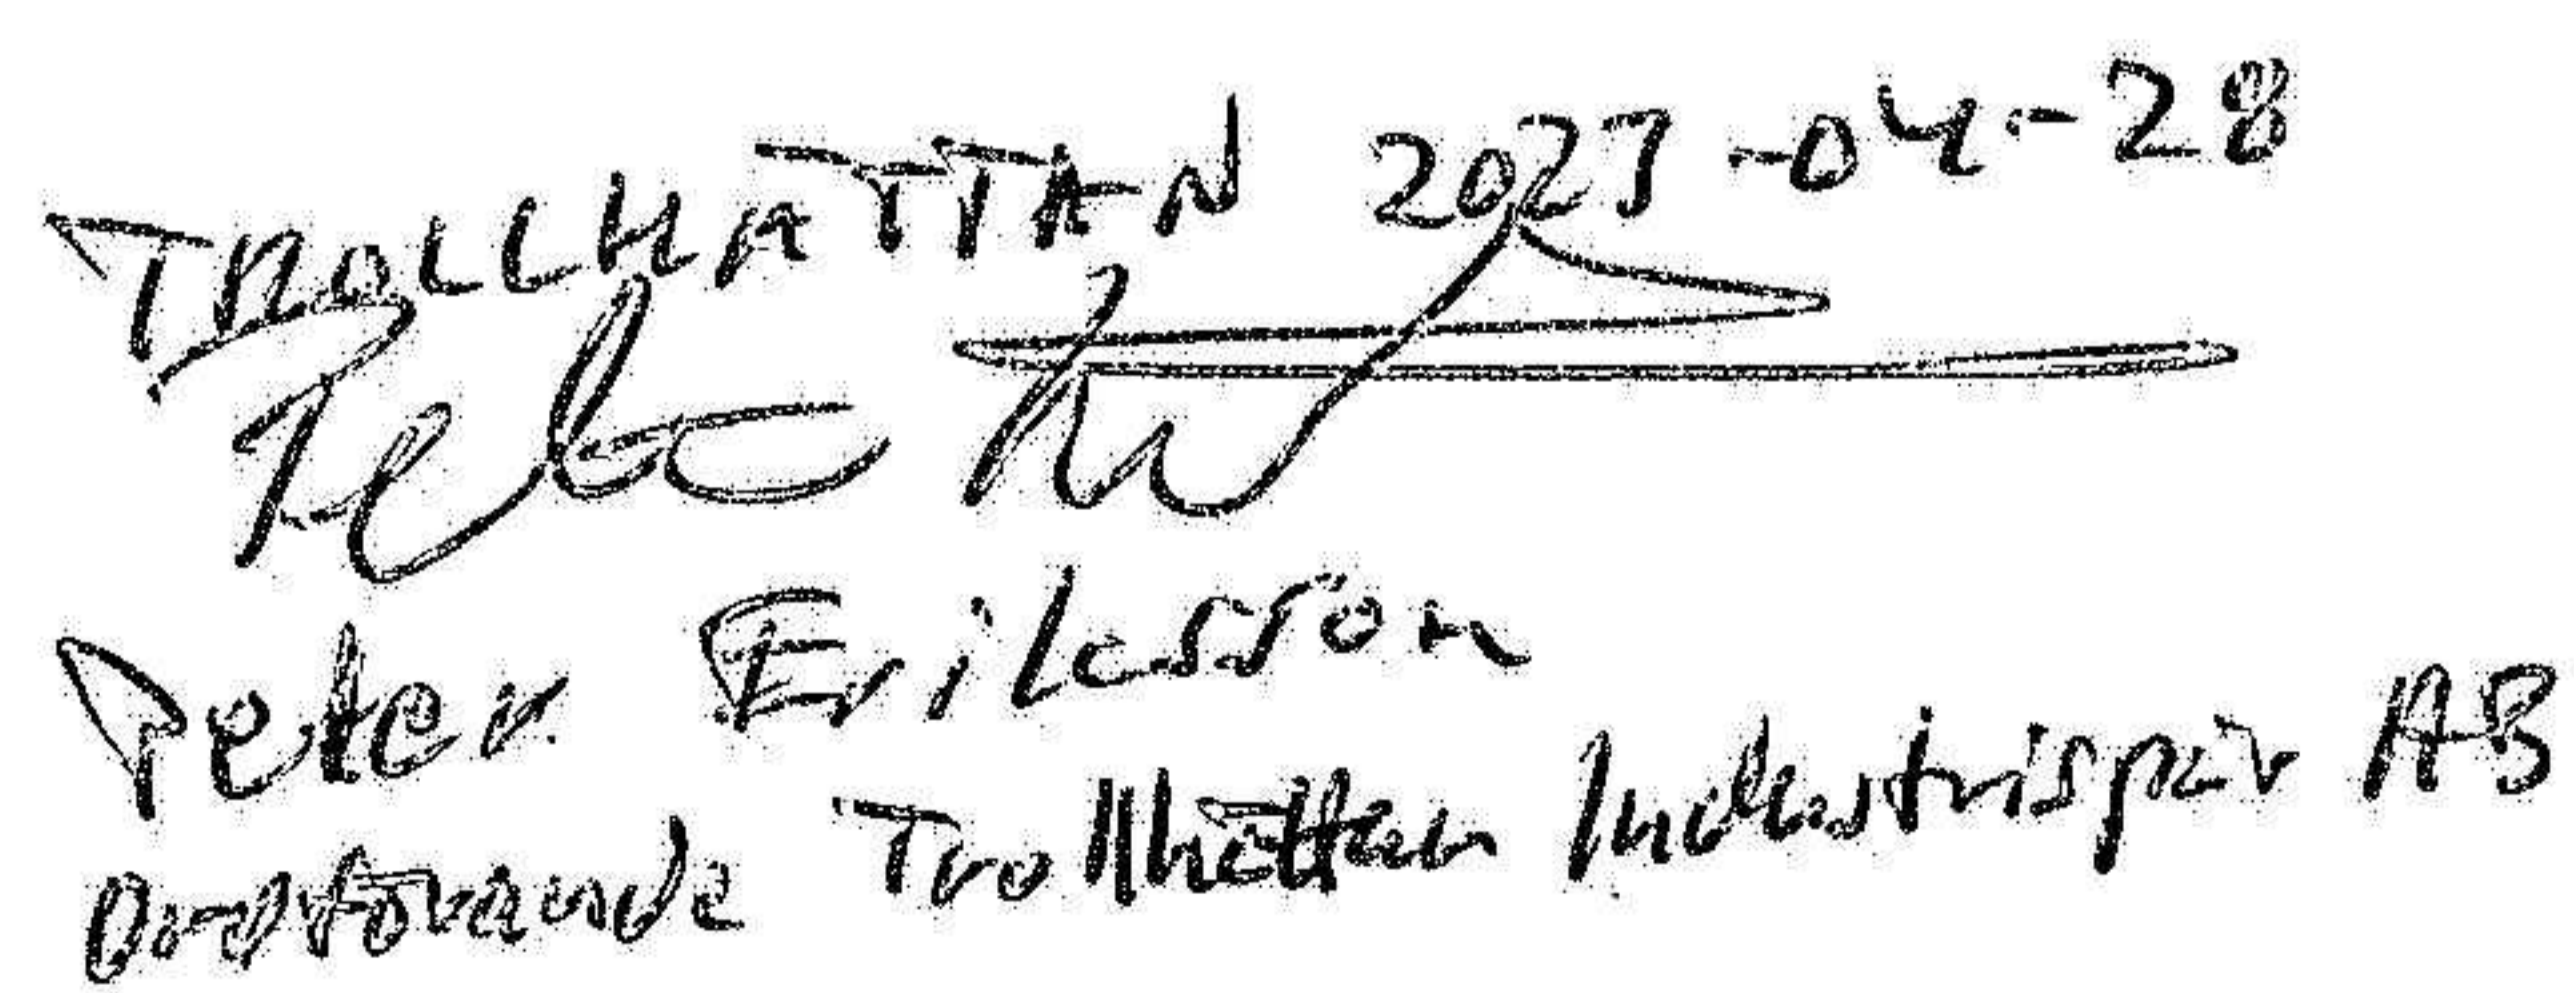 TROLLHATTAN 2023-04-28
Peter Eriksson
Ordförande Trollhättan Industrispår AB